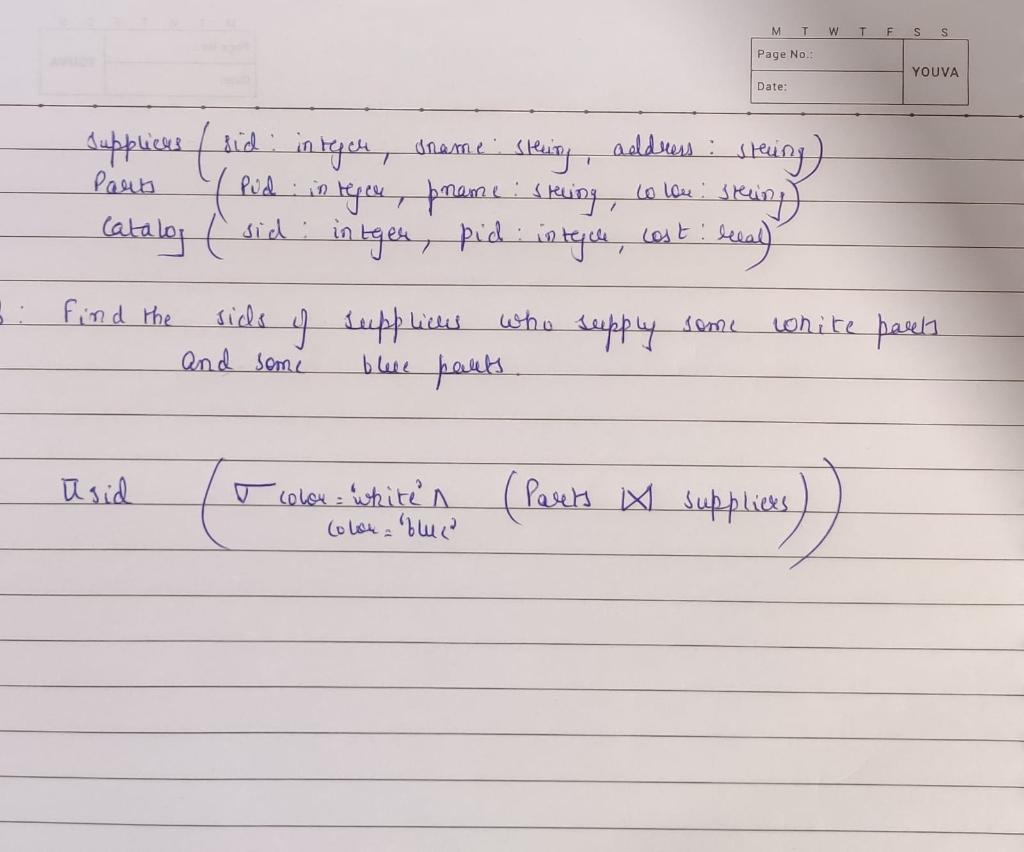 M T W T F S S
Page No.:
YOUVA
Date:
Suppliers ( sid : integer, sname : string, address : string)
Parts ( Pid : integer, pname : string, color : string)
Catalog ( sid : integer, pid : integer, cost : real)
: Find the sids of suppliers who supply some white parts
and some blue parts.
π sid ( σ color = 'white' ∧ ( Parts ⋈ suppliers ) )
color = 'blue'